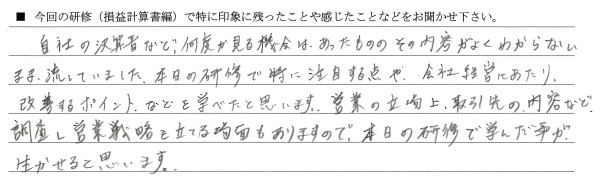 ■ 今回の研修（損益計算書編）で特に印象に残ったことや感じたことなどをお聞かせ下さい。
自社の決算書など、何度か見る機会は、あったもののその内容がよくわからない
まま、流していました。本日の研修で特に注目する点や、会社経営にあたり、
改善するポイントなどを学べたと思います。営業の立場上、取引先の、内容など
調査し営業戦略を立てる場面もありますので、本日の研修で学んだ事が
生かせると思います。